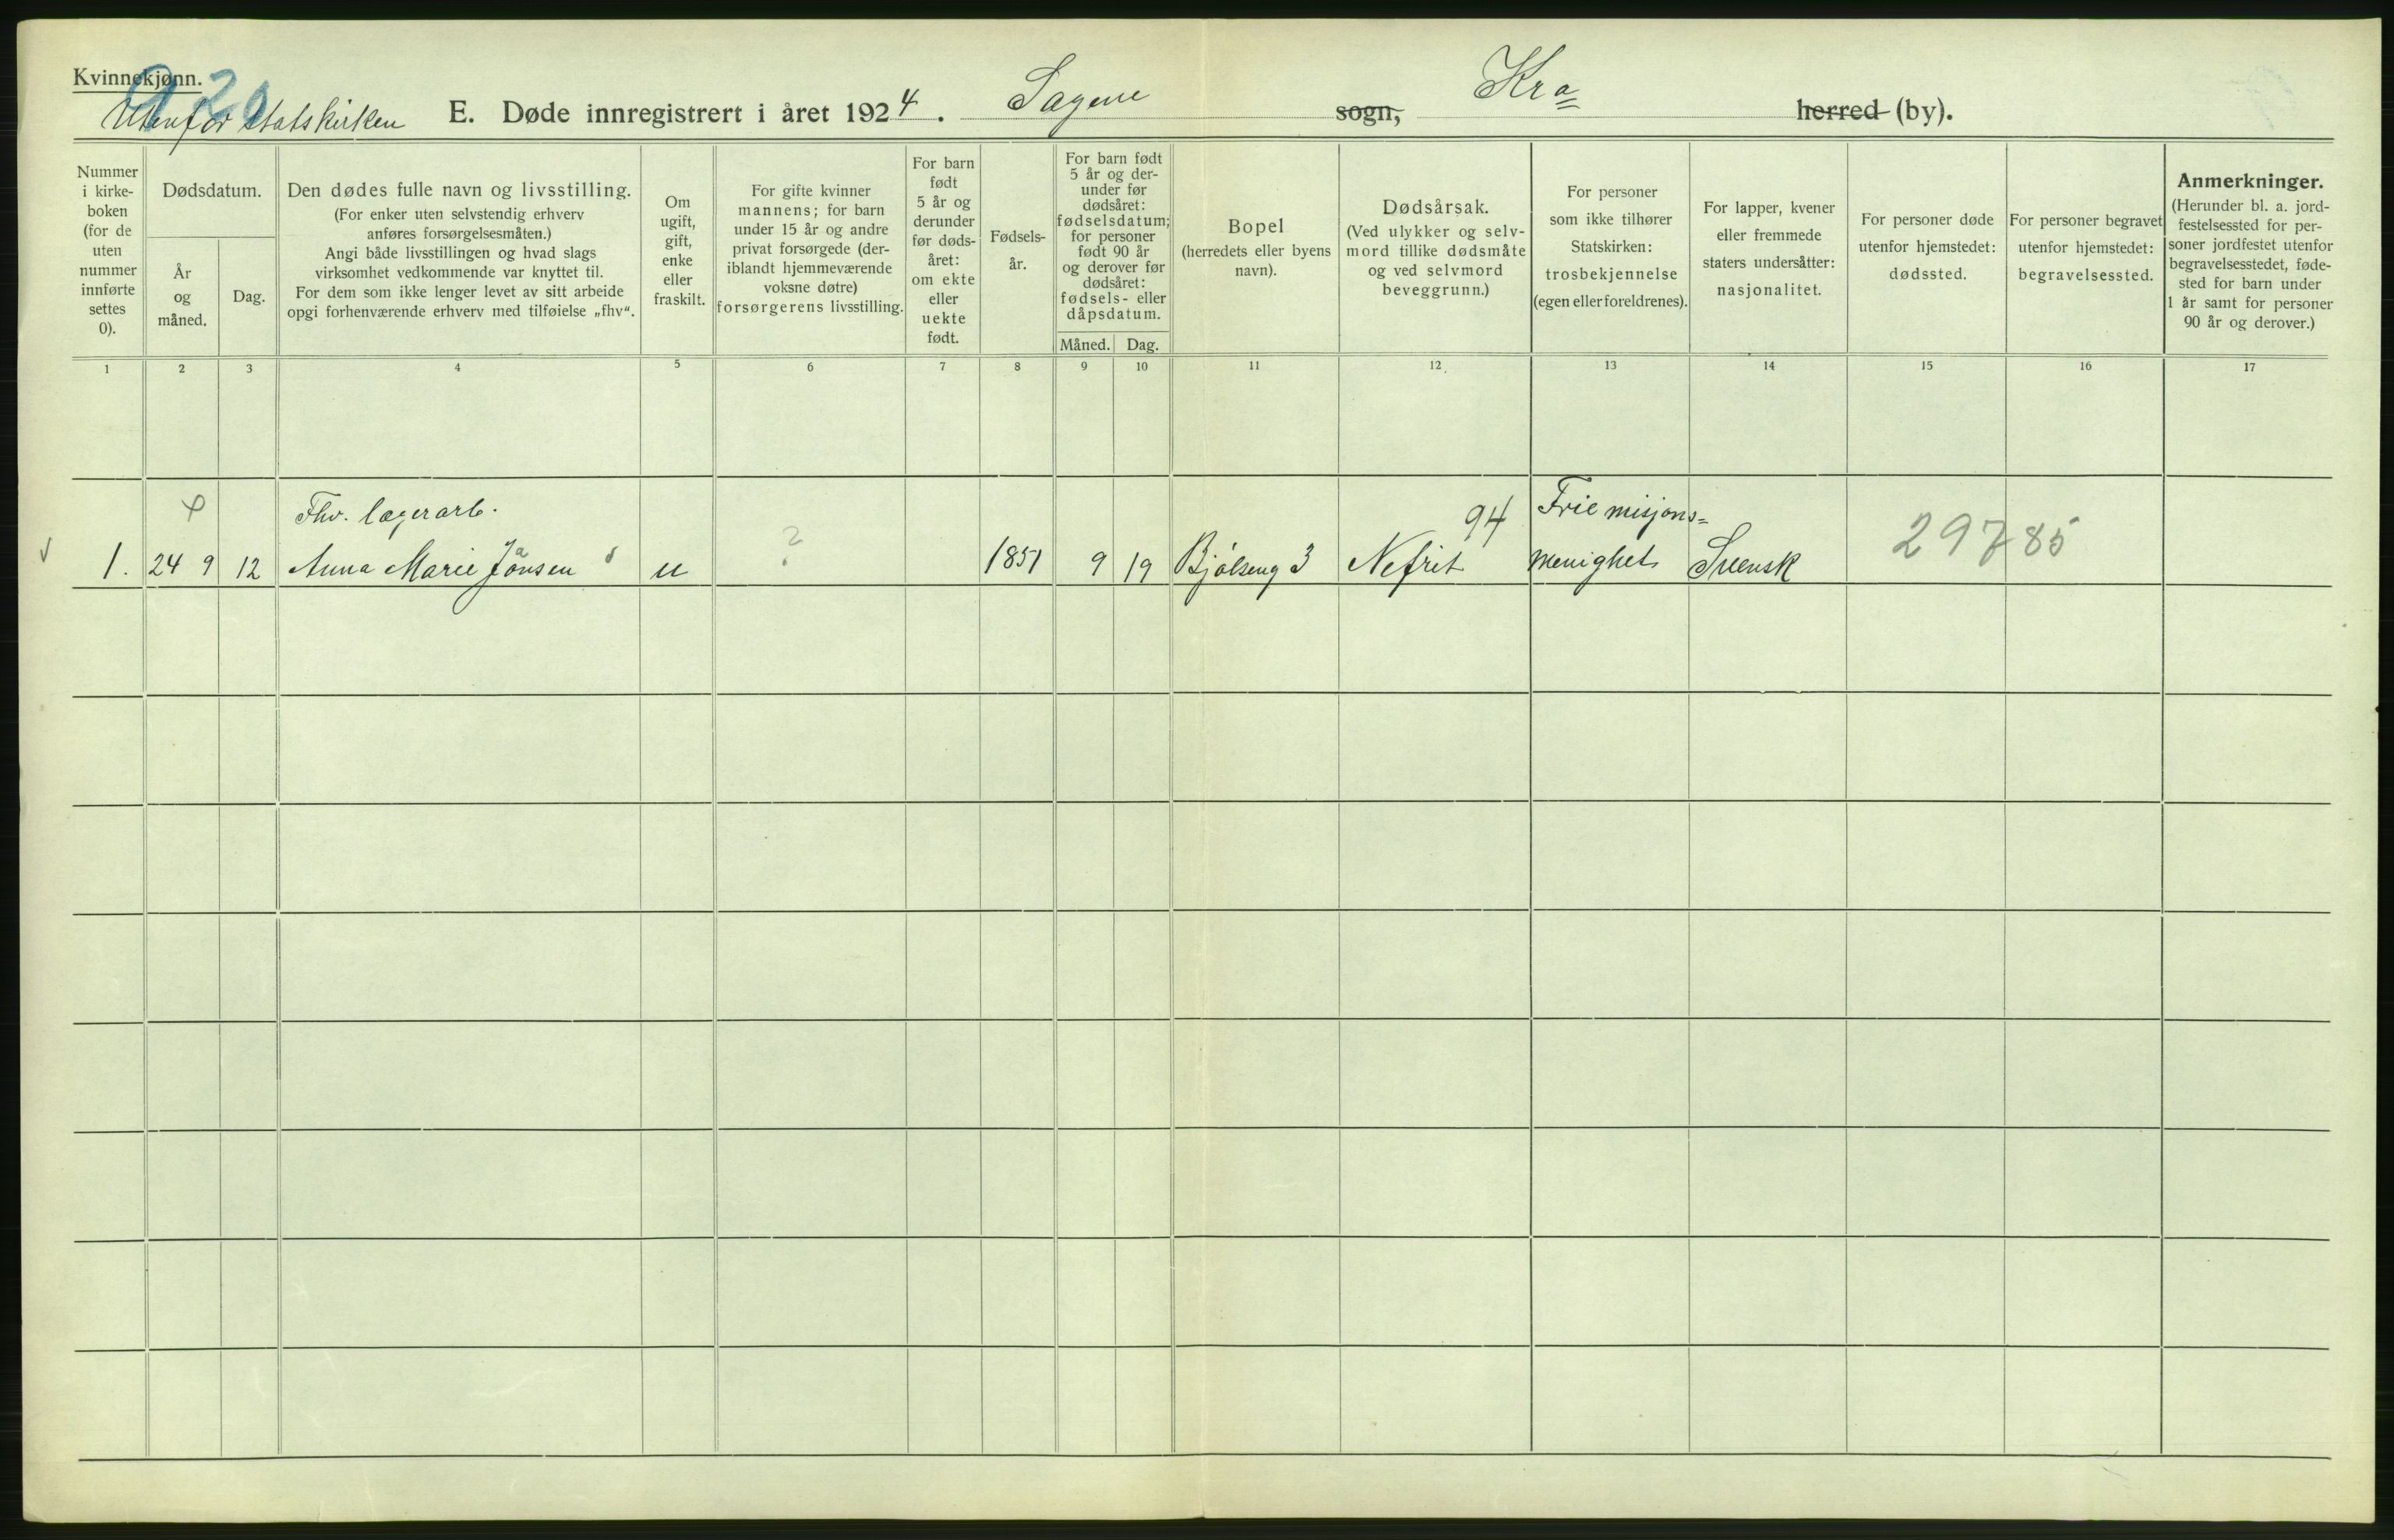 Kvinnekjønn.
Utenfor statskirken
E. Døde innregistrert i året 1924. Sagene sogn, Kra herred (by).
Nummer i kirke-boken (for de uten nummer innførte settes 0).
Dødsdatum.
År og måned.
Dag.
Den dødes fulle navn og livsstilling.
(For enker uten selvstendig erhverv
anføres forsørgelsesmåten.)
Angi både livsstillingen og hvad slags
virksomhet vedkommende var knyttet til.
For dem som ikke lenger levet av sitt arbeide
opgi forhenværende erhverv med tilføielse „fhv“.
Om
ugift,
gift,
enke
eller
fraskilt.
For gifte kvinner
mannens; for barn
under 15 år og andre
privat forsørgede (der-
iblandt hjemmeværende
voksne døtre)
forsørgerens livsstilling.
For barn
født
5 år og
derunder
før døds-
året:
om ekte
eller
uekte
født.
Fødsels-
år.
For barn født
5 år og der-
under før
dødsåret:
fødselsdatum;
for personer
født 90 år
og derover før
dødsåret:
fødsels- eller
dåpsdatum.
Måned. Dag.
Bopel
(herredets eller byens
navn).
Dødsårsak.
(Ved ulykker og selv-
mord tillike dødsmåte
og ved selvmord
beveggrunn.)
For personer
som ikke tilhører
Statskirken:
trosbekjennelse
(egen eller foreldrenes).
For lapper, kvener
eller fremmede
staters undersåtter:
nasjonalitet.
For personer døde
utenfor hjemstedet:
dødssted.
For personer begravet
utenfor hjemstedet:
begravelsessted.
Anmerkninger.
(Herunder bl. a. jord-
festelsessted for per-
soner jordfestet utenfor
begravelsesstedet, føde-
sted for barn under
1 år samt for personer
90 år og derover.)
1 2 3 4 5 6 7 8 9 10 11 12 13 14 15 16 17
Fhv. lagerarb. 94 Frie misjons=
1. 24 9 12 Anna Marie Jansen u ? 1851 9 19 Bjølseng 3 Nefrit menighet Svensk 29785